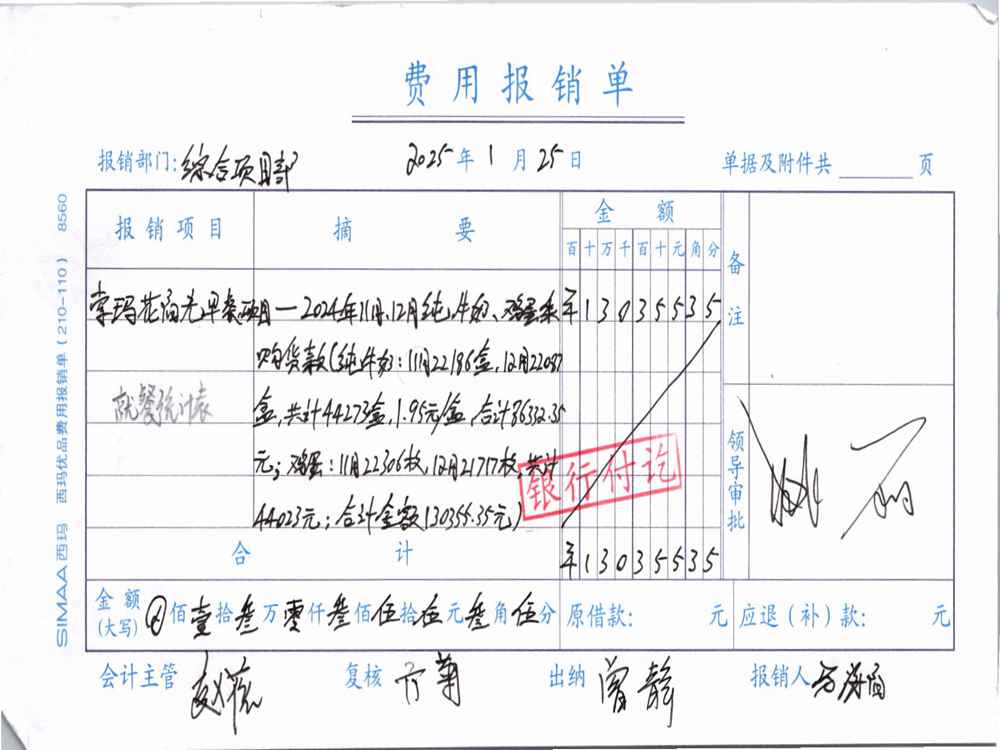 费用报销单
报销部门:综合项目部 2025年1月25日 单据及附件共 页
报销项目 摘要 金额 备注
百十万千百十元角分
李玛花尚光早餐项目—2024年11月,12月纯牛奶、鸡蛋采 ¥13035535
购货款(纯牛奶:11月22186盒,12月22087
就餐统计表
盒,共计44273盒,1.95元/盒,合计86332.35
元;鸡蛋:11月22306枚,12月21717枚,共计
44023元;合计金额130355.35元)
银行付讫
领导审批
合计 ¥13035535
金额(大写) 佰壹拾叁万零仟叁佰伍拾伍元叁角伍分 原借款: 元 应退(补)款: 元
会计主管 复核 出纳 曾静 报销人
SIMAA西玛 西玛优品费用报销单(210-110) 8560